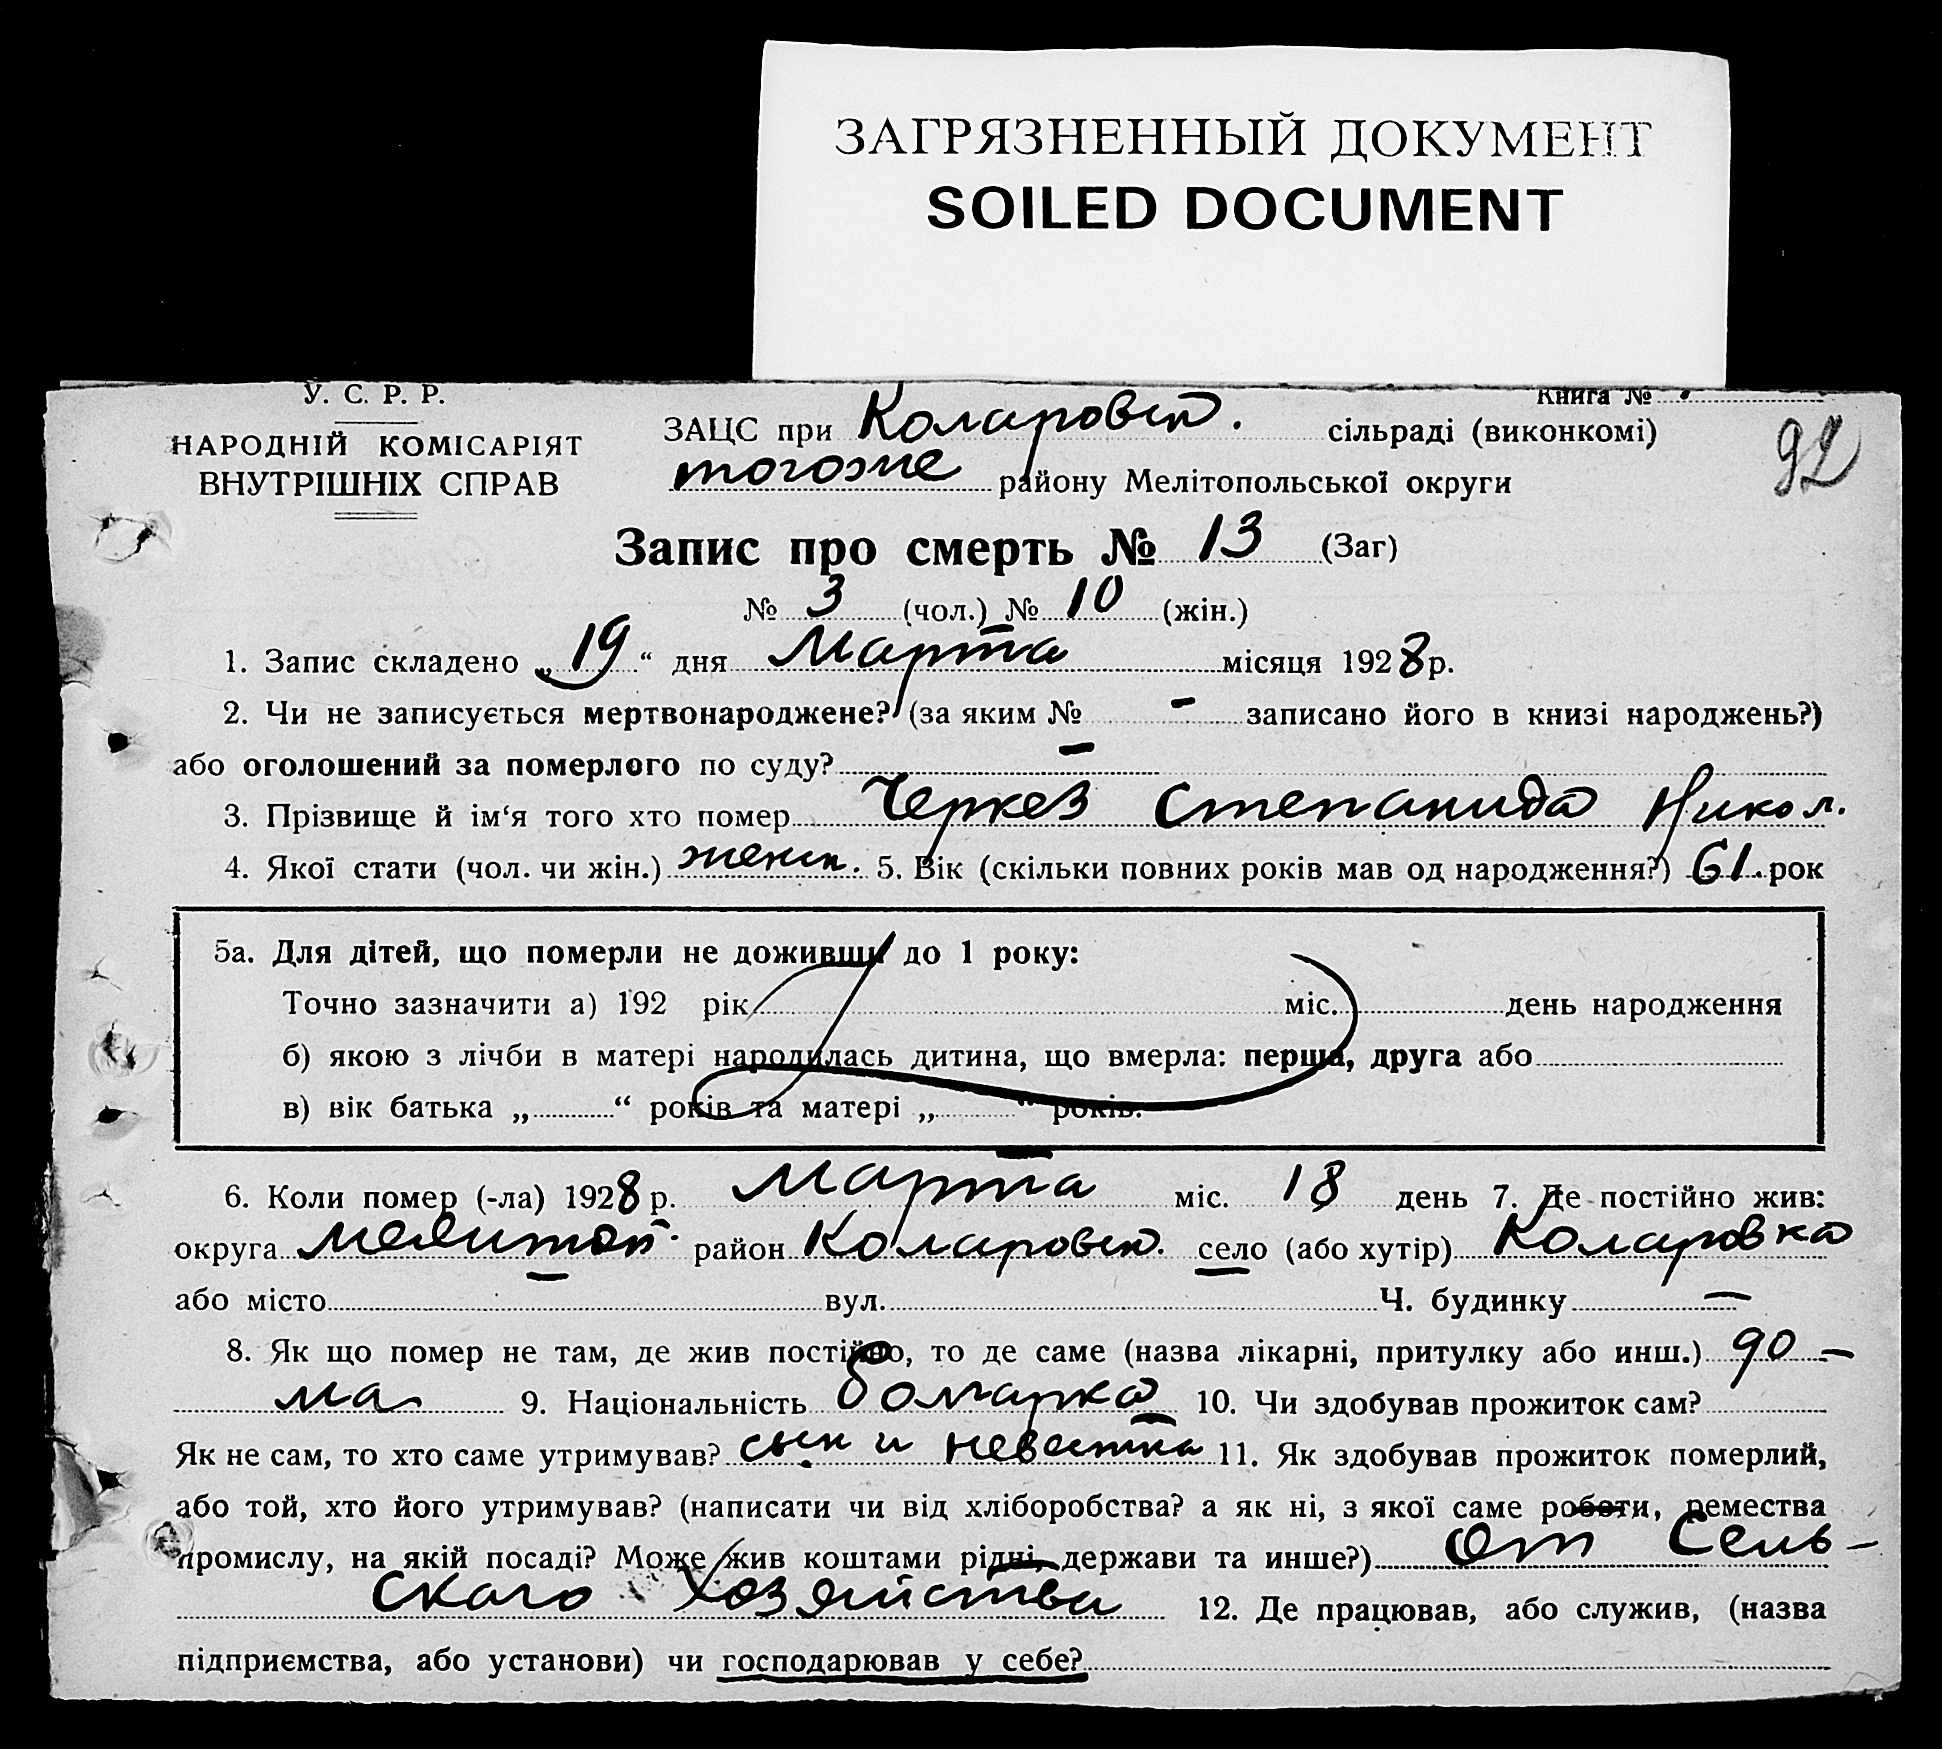 ЗАГРЯЗНЕННЫЙ ДОКУМЕНТ
SOILED DOCUMENT
У. С. Р. Р.
Книга №
НАРОДНІЙ КОМІСАРІЯТ
ВНУТРІШНІХ СПРАВ
ЗАЦС при Коларовск. сільраді (виконкомі)
92
тогоже району Мелітопольської округи
Запис про смерть № 13 (Заг)
№ 3 (чол.) № 10 (жін.)
1. Запис складено „19“ дня Марта місяця 1928 р.
2. Чи не записується мертвонароджене? (за яким № - записано його в книзі народжень?)
або оголошений за померлого по суду? -
3. Прізвище й ім‘я того хто помер Черкез Степанида Никол.
4. Якої стати (чол. чи жін.) женск. 5. Вік (скільки повних років мав од народження?) 61. рок
5а. Для дітей, що померли не доживши до 1 року:
Точно зазначити а) 192 рік міс. день народження
б) якою з лічби в матері народилась дитина, що вмерла: перша, друга або
в) вік батька „ “ років та матері „ “ років.
6. Коли помер (-ла) 1928 р. Марта міс. 18 день 7. Де постійно жив:
округа Мелитоп. район Коларовск. село (або хутір) Коларовка
або місто — вул. Ч. будинку —
8. Як що помер не там, де жив постійно, то де саме (назва лікарні, притулку або инш.) до-
ма 9. Національність болгарка 10. Чи здобував прожиток сам?
Як не сам, то хто саме утримував? сын и невестка 11. Як здобував прожиток померлий,
або той, хто його утримував? (написати чи від хліборобства? а як ні, з якої саме роботи, ремества
промислу, на якій посаді? Може жив коштами рідні, держави та инше?) От Сель-
скаго хозяйства 12. Де працював, або служив, (назва
підприємства, або установи) чи господарював у себе?